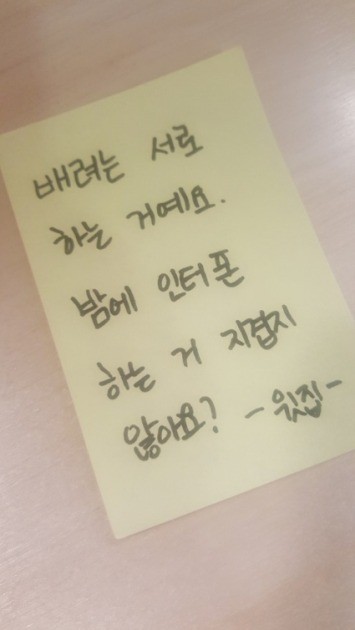 배려는 서로
하는 거예요.
밤에 인터폰
하는 거 지겹지
않아요? - 윗집 -